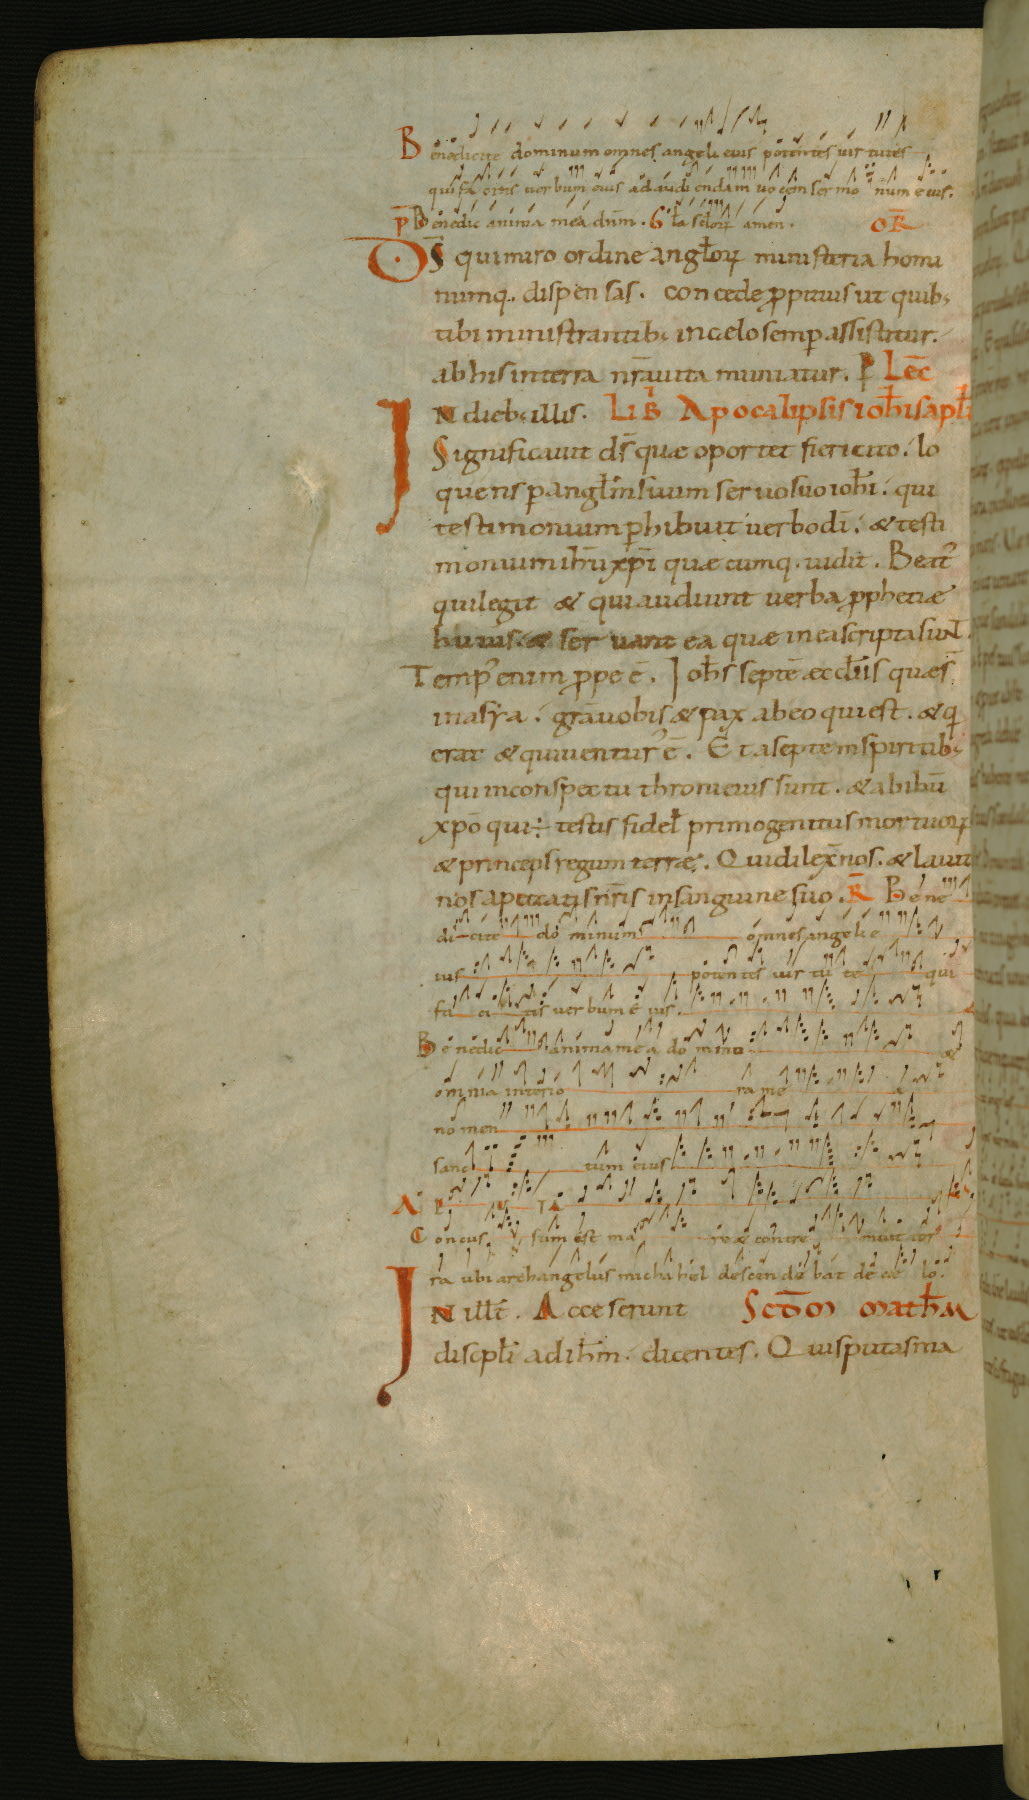 Benedicite dominum omnes angeli eius potentes uirtutes
qui facitis uerbum eius ad audiendam uocem sermonum eius.
p̄ Benedic anima mea dn̄m. Gła scłorꝝ amen. OR̄
Ds̄ qui miro ordine angłorꝝ ministeria homi
numq. dispensas. concede ꝓpitius ut quib;
tibi ministrantib; in celo semꝑ assistitur.
ab his in terra nr̄a uita muniatur. Lec̄
IN dieb; illis. Lib̄ Apocalipsis ioħis apłi
Significauit ds̄ quæ oportet fieri cito. lo
quens ꝑ angłm suum seruo suo ioħi. qui
testimonium ꝑhibuit uerbo dī. & testi
monium ihū xp̄i quæcumq. uidit. Beat᾿
qui legit & qui audiunt uerba ꝓphetiæ
huius. & seruant ea quæ in ea scripta sunt.
Temp᾿ enim ꝓpe ē. Ioħs septē æccłiis quæ s̄
in asya. grā uobis & pax ab eo qui est. & q
erat & qui uentur᾿ ē. Et a septem spiritib;
qui in conspectu throni eius sunt. & ab ihū
xp̄o qui ÷ testis fideł primogenitus mortuorꝝ
& princeps regum terræ. Qui dilex̄ nos. & lauit
nos a peccatis nr̄is in sanguine suo. R̄ Bene
dicite dominum omnes angeli e
ius potentes uirtute qui
facitis uerbum eius.
Benedic anima mea domino &
omnia interiora mea
nomen
sanctum eius
A E U IA
Concussum est mare & contremuit ter
ra ubi archangelus michahel descendebat de cęlo.
IN illī. Accesserunt Scd̄m Matħm
discipłi ad ihm̄. dicentes. Quis putas ma